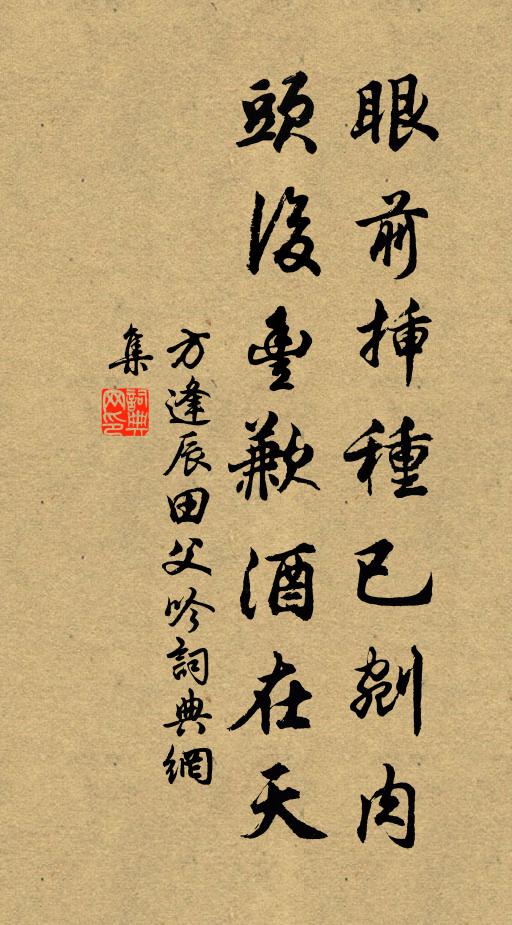 眼前插種已剜肉
頭後豐歉酒在天
方逢辰田父吟詞典網
集
詞典
网印